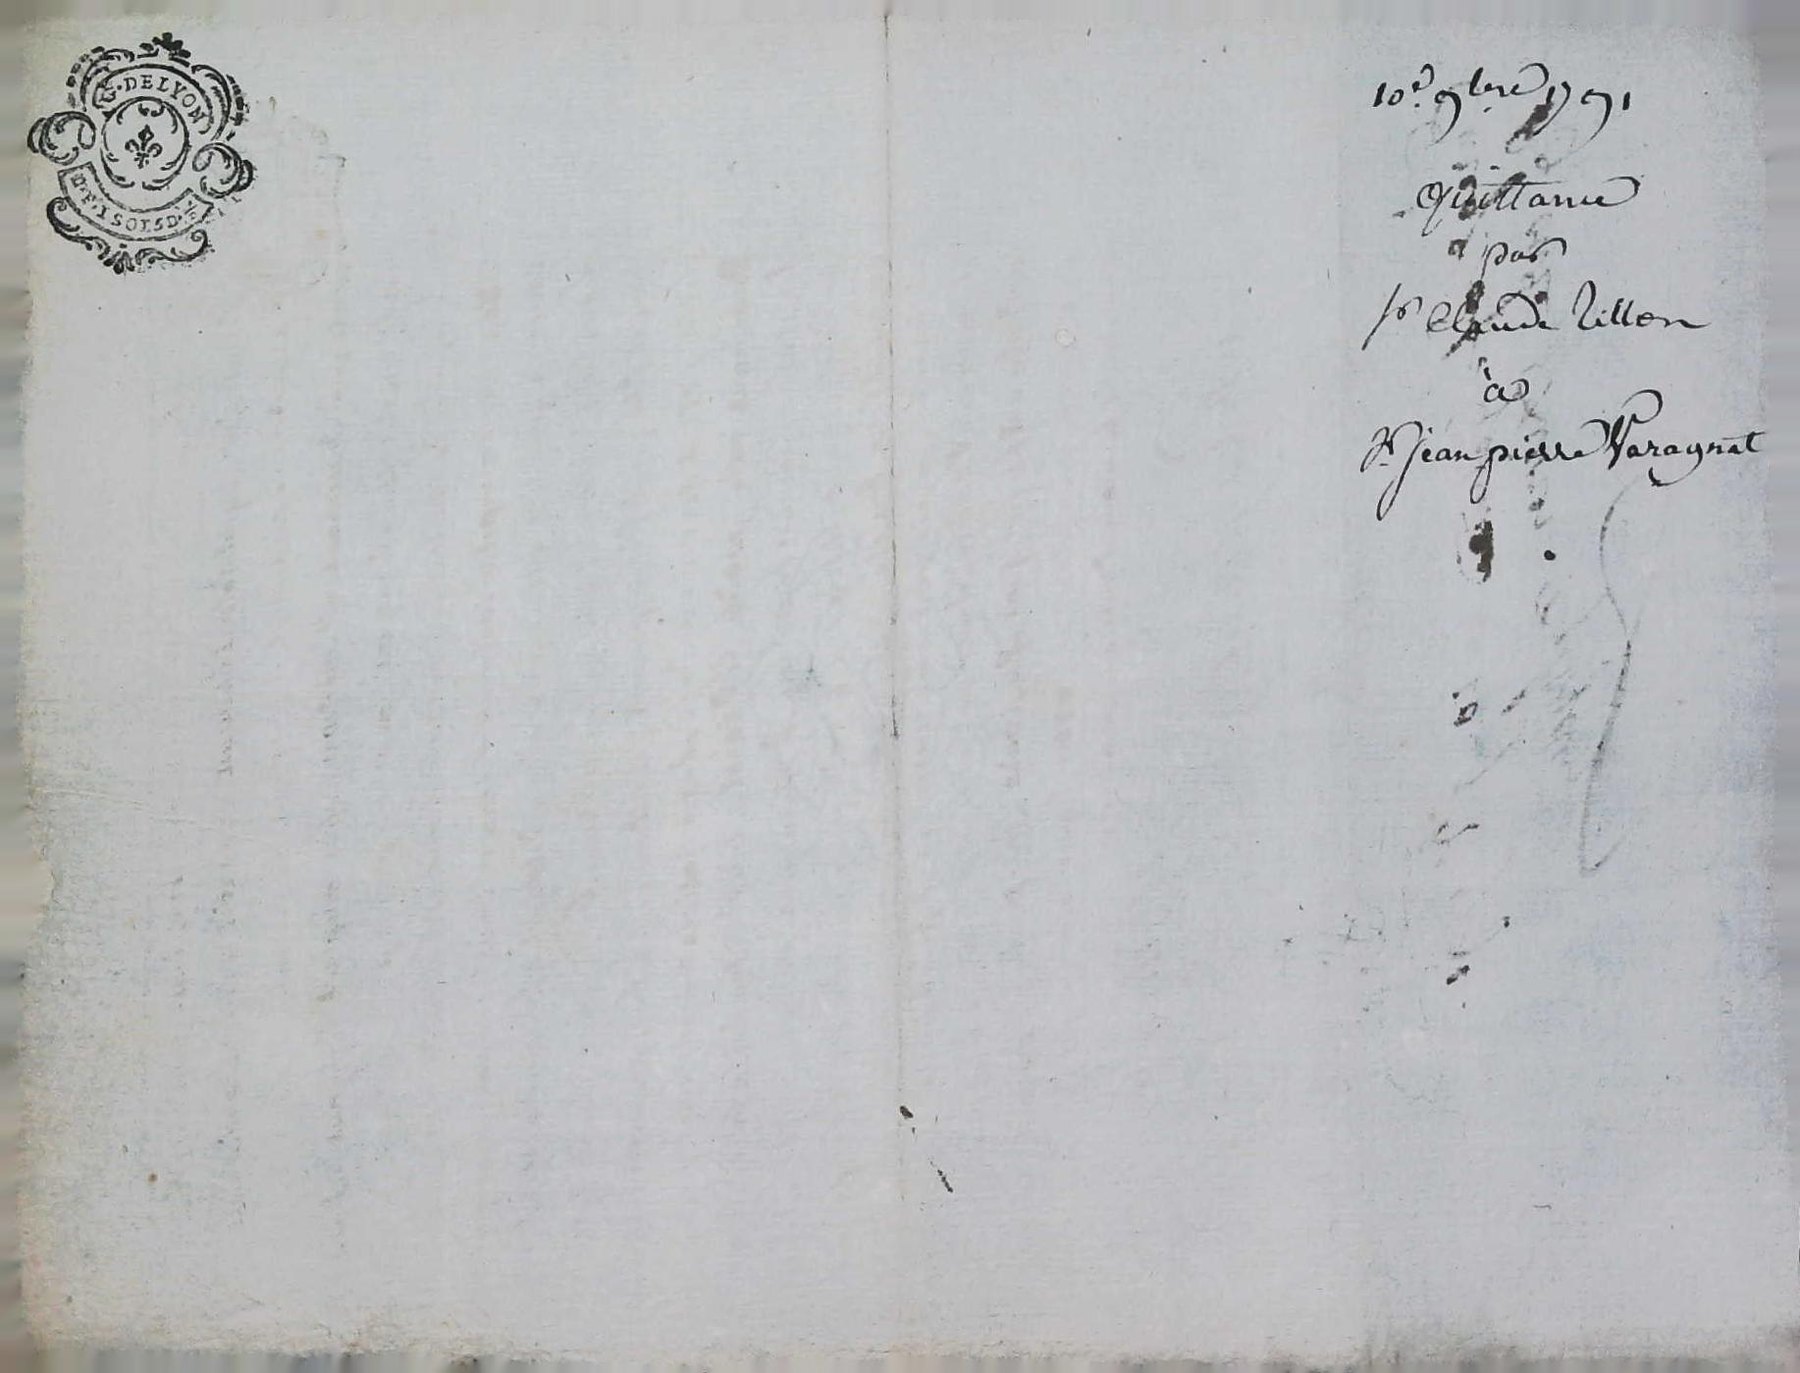 G. DE LYON
D. F. 1 SOL 5 D.
10.e 9bre 1791
Quittance
par
Sr Claude Tillon
à
Sr jean pierre Varagnat